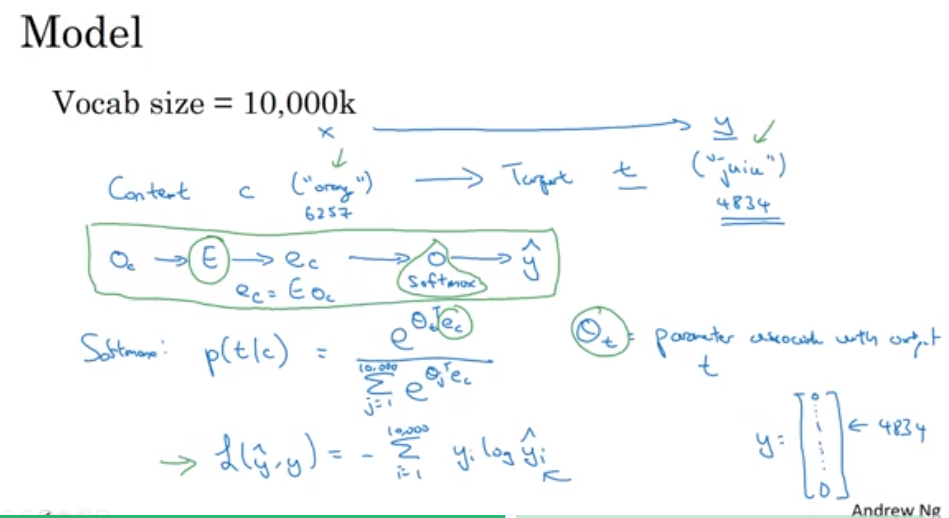 Model
Vocab size = 10,000k
x → y ✓
Content c ("orange") → Target t ("juice")
6257 4834
O_c → E → e_c → O → ŷ
softmax
e_c = E O_c
Softmax: p(t|c) = e^{θ_t^T e_c} / Σ_{j=1}^{10,000} e^{θ_j^T e_c}
θ_t = parameter associated with output t
→ ℒ(ŷ, y) = - Σ_{i=1}^{10,000} y_i log ŷ_i
y = [0 ⋮ 1 ⋮ 0] ← 4834
Andrew Ng